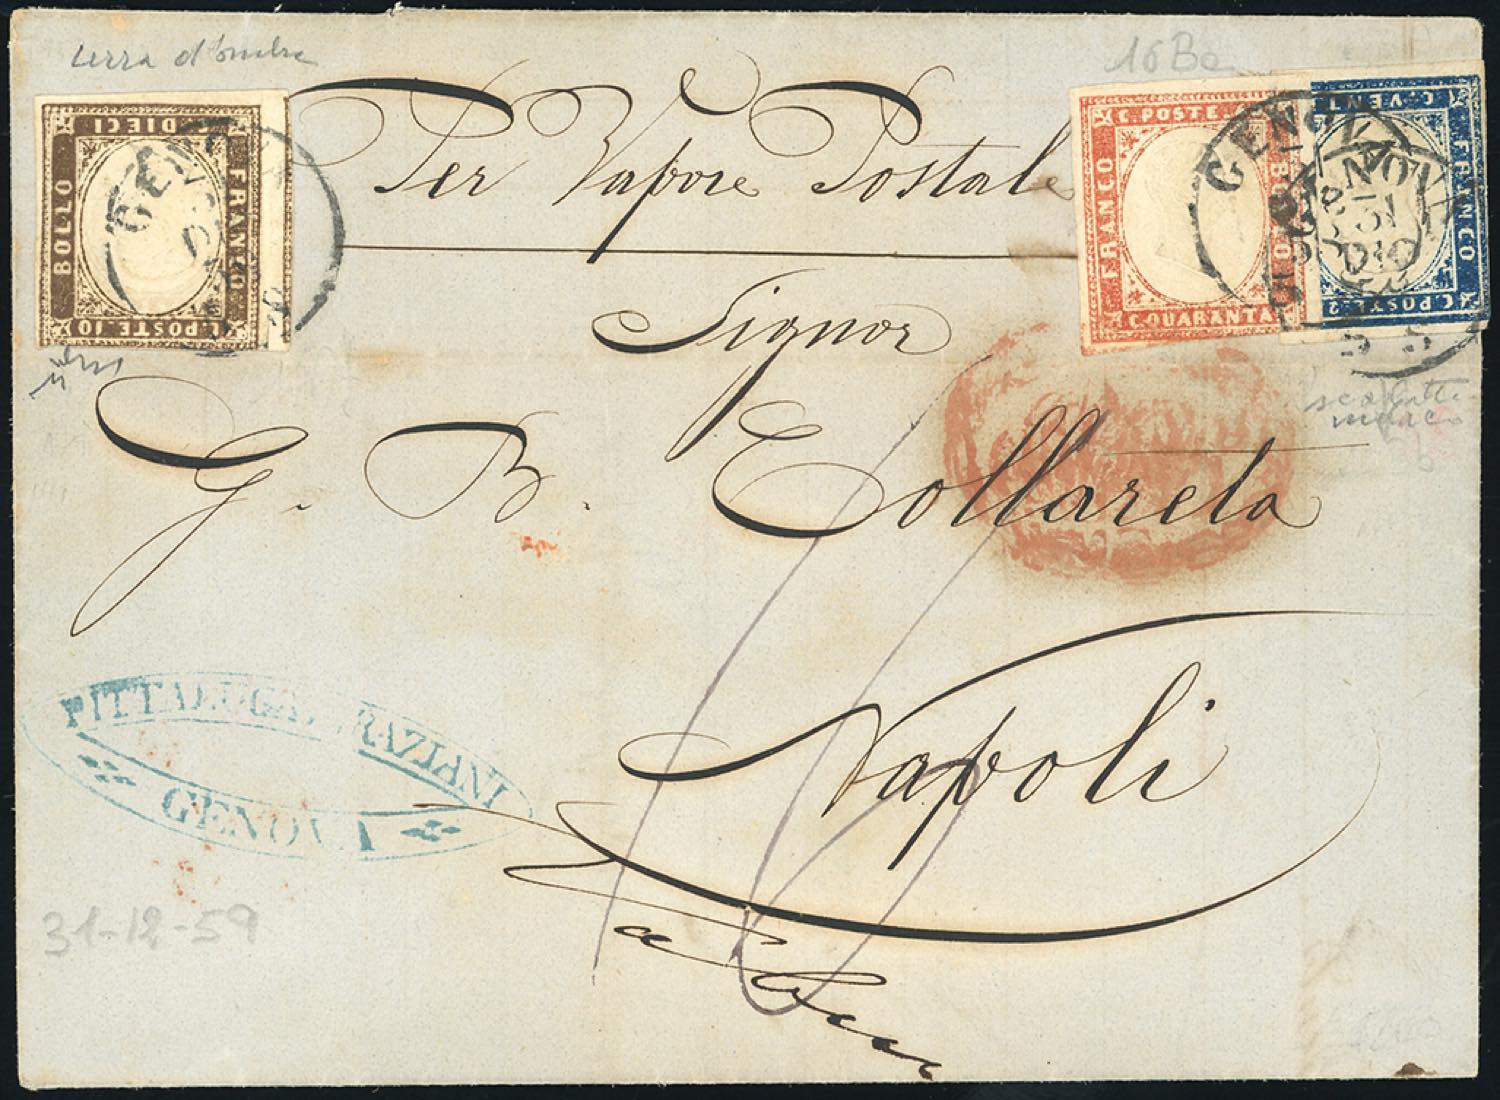 terra d'ombra
16Ba
C. DIECI
BOLLO
FRANCO
C. POSTE. 10
GENOVA
Per Vapore Postale
C. POSTE.
FRANCO
BOLLO
C. QUARANTA
C. VENTI
FRANCO
C. POSTE. 2
GENOVA
GENOVA
31
DIC
59
Signor
G. B. Collareta
Napoli
PITTALUGA GRAZIANI
GENOVA
31-12-59